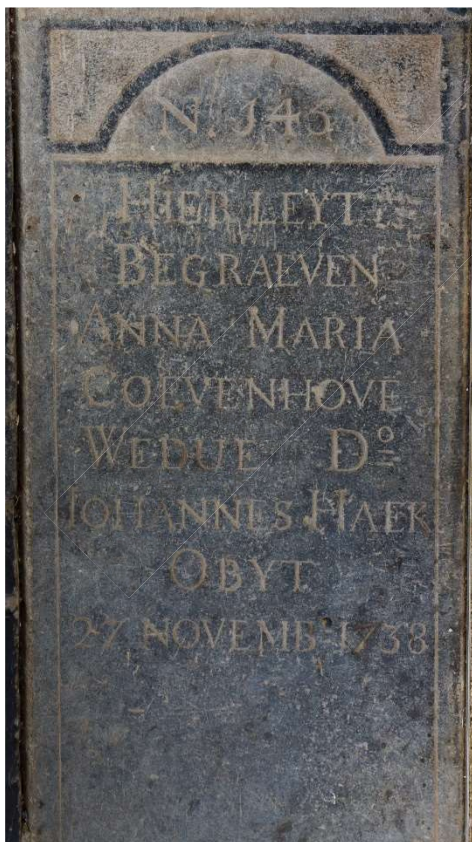 N. 145
HIER LEYT
BEGRAEVEN
ANNA MARIA
COEVENHOVE
WEDUE Dº
IOHANNES HAEK
OBYT
27 NOVEMBʳ 1738